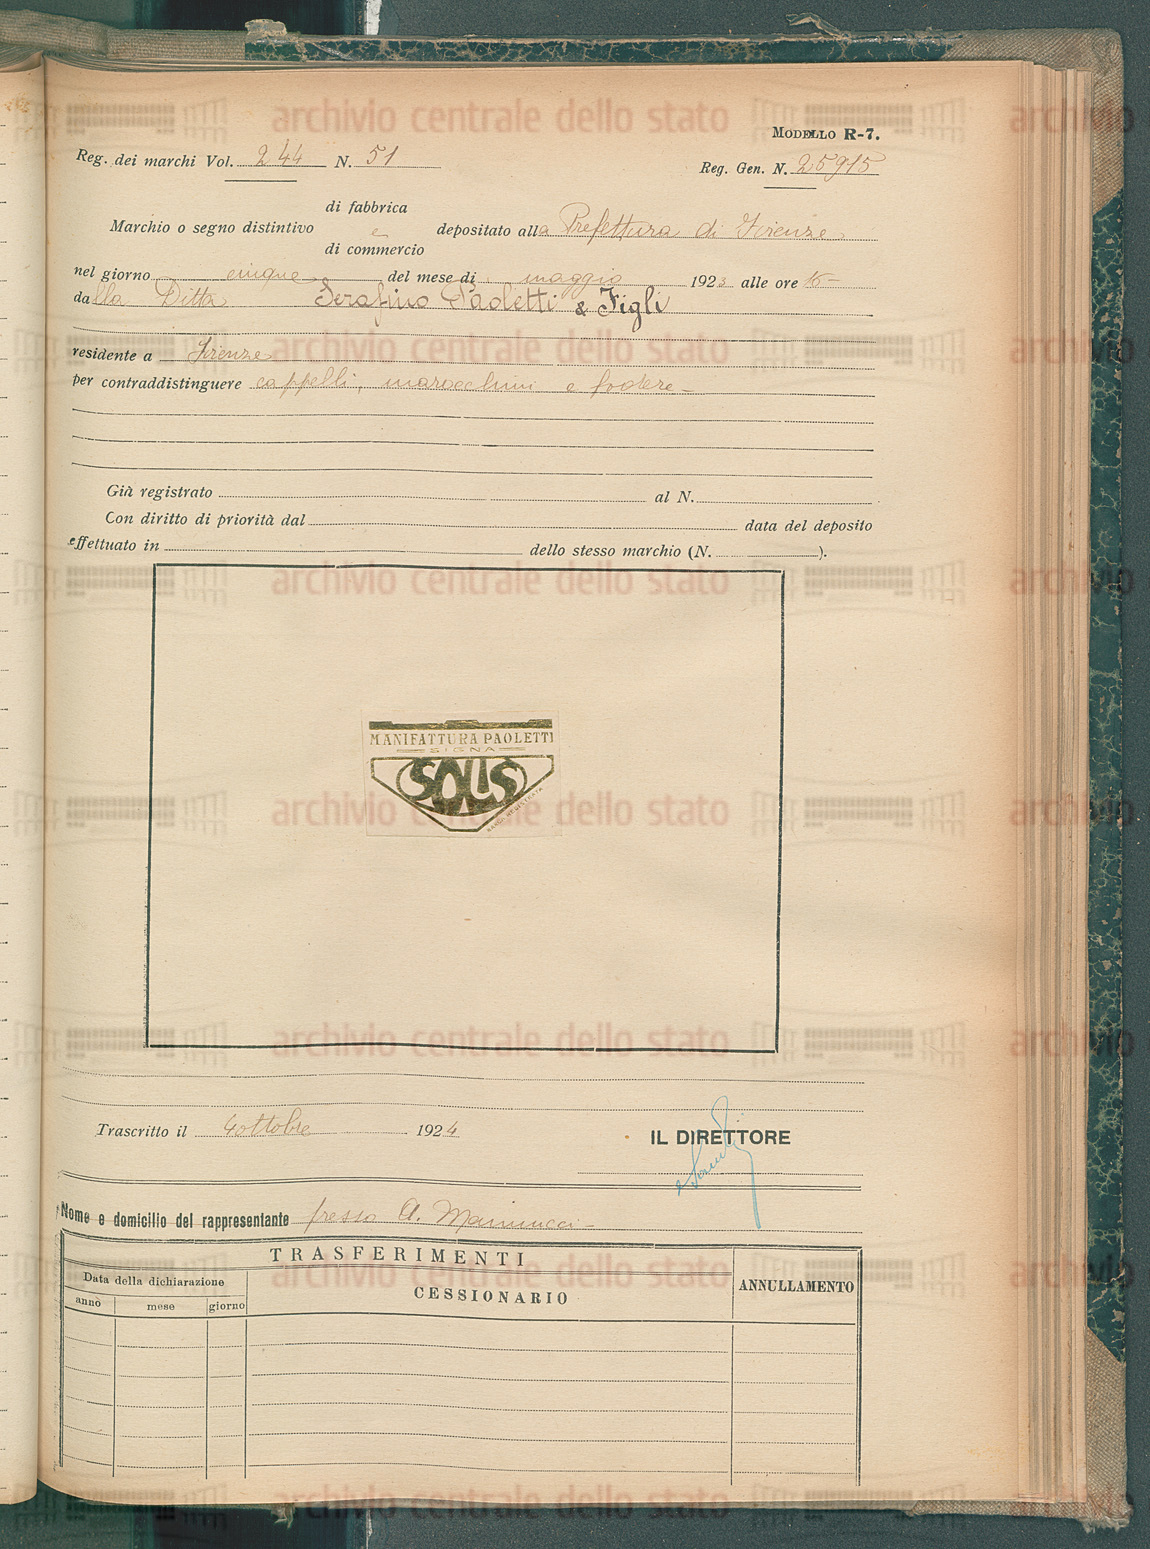 MODELLO R-7.
Reg. dei marchi Vol. 244 N. 51
Reg. Gen. N. 25915
di fabbrica
Marchio o segno distintivo e depositato alla Prefettura di Firenze
di commercio
nel giorno cinque del mese di maggio 1923 alle ore 16
dalla Ditta Serafino Paoletti & Figli
residente a Firenze
per contraddistinguere cappelli, marocchini e fodere
Già registrato al N.
Con diritto di priorità dal data del deposito
effettuato in dello stesso marchio (N. ).
MANIFATTURA PAOLETTI
SIGNA
SOLIS
MARCA REGISTRATA
Trascritto il 4 ottobre 1924
IL DIRETTORE
Nome e domicilio del rappresentante presso A. Mannucci
TRASFERIMENTI
Data della dichiarazione
CESSIONARIO
ANNULLAMENTO
anno mese giorno
archivio centrale dello stato